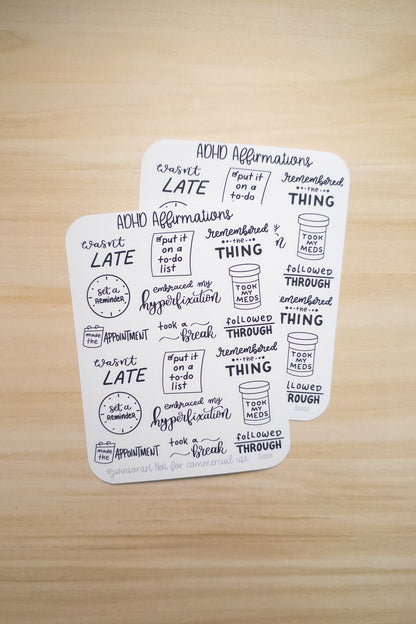 ADHD Affirmations
wasn't
LATE
put it
on a
to-do
list
remembered
the
THING
TOOK
MY
MEDS
followed
THROUGH
remembered
THING
TOOK
MY
MEDS
followed
THROUGH
ADHD Affirmations
wasn't
LATE
put it
on a
to-do
list
remembered
the
THING
set a
REMINDER
embraced my
hyperfixation
TOOK
MY
MEDS
made
the
APPOINTMENT
took a
break
followed
THROUGH
wasn't
LATE
put it
on a
to-do
list
remembered
the
THING
set a
REMINDER
embraced my
hyperfixation
TOOK
MY
MEDS
made
the
APPOINTMENT
took a
break
followed
THROUGH
Not for commercial use